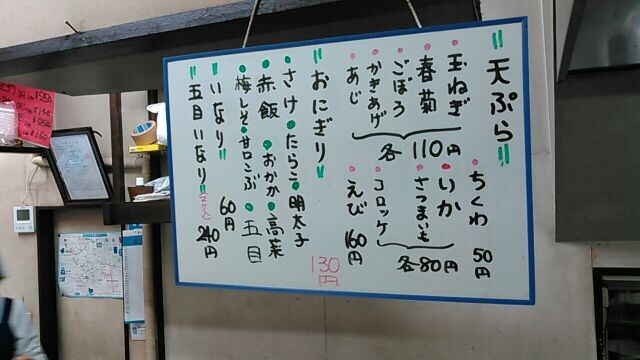 〃天ぷら〃
玉ねぎ
春菊
ごぼう
かきあげ
あじ
各110円
ちくわ 50円
いか
さつまいも
コロッケ
各80円
えび 160円
〃おにぎり〃
さけ・たらこ・明太子
赤飯・おかか・高菜
梅しそ・甘口こぶ・五目
130円
〃いなり〃 60円
〃五目いなり〃 240円